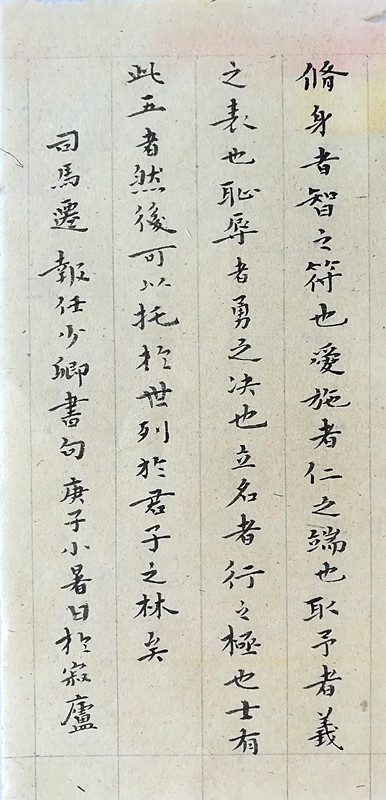 脩身者智之符也愛施者仁之端也取予者義
之表也恥辱者勇之决也立名者行之極也士有
此五者然後可以托於世列於君子之林矣
司馬遷報任少卿書句庚子小暑日於寂廬